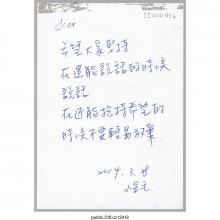 dear
希望大家堅持
在還能說話的時候
說話
在还能抱持希望的
時候不要輕易放棄
2014.3.
public.318.io/12419